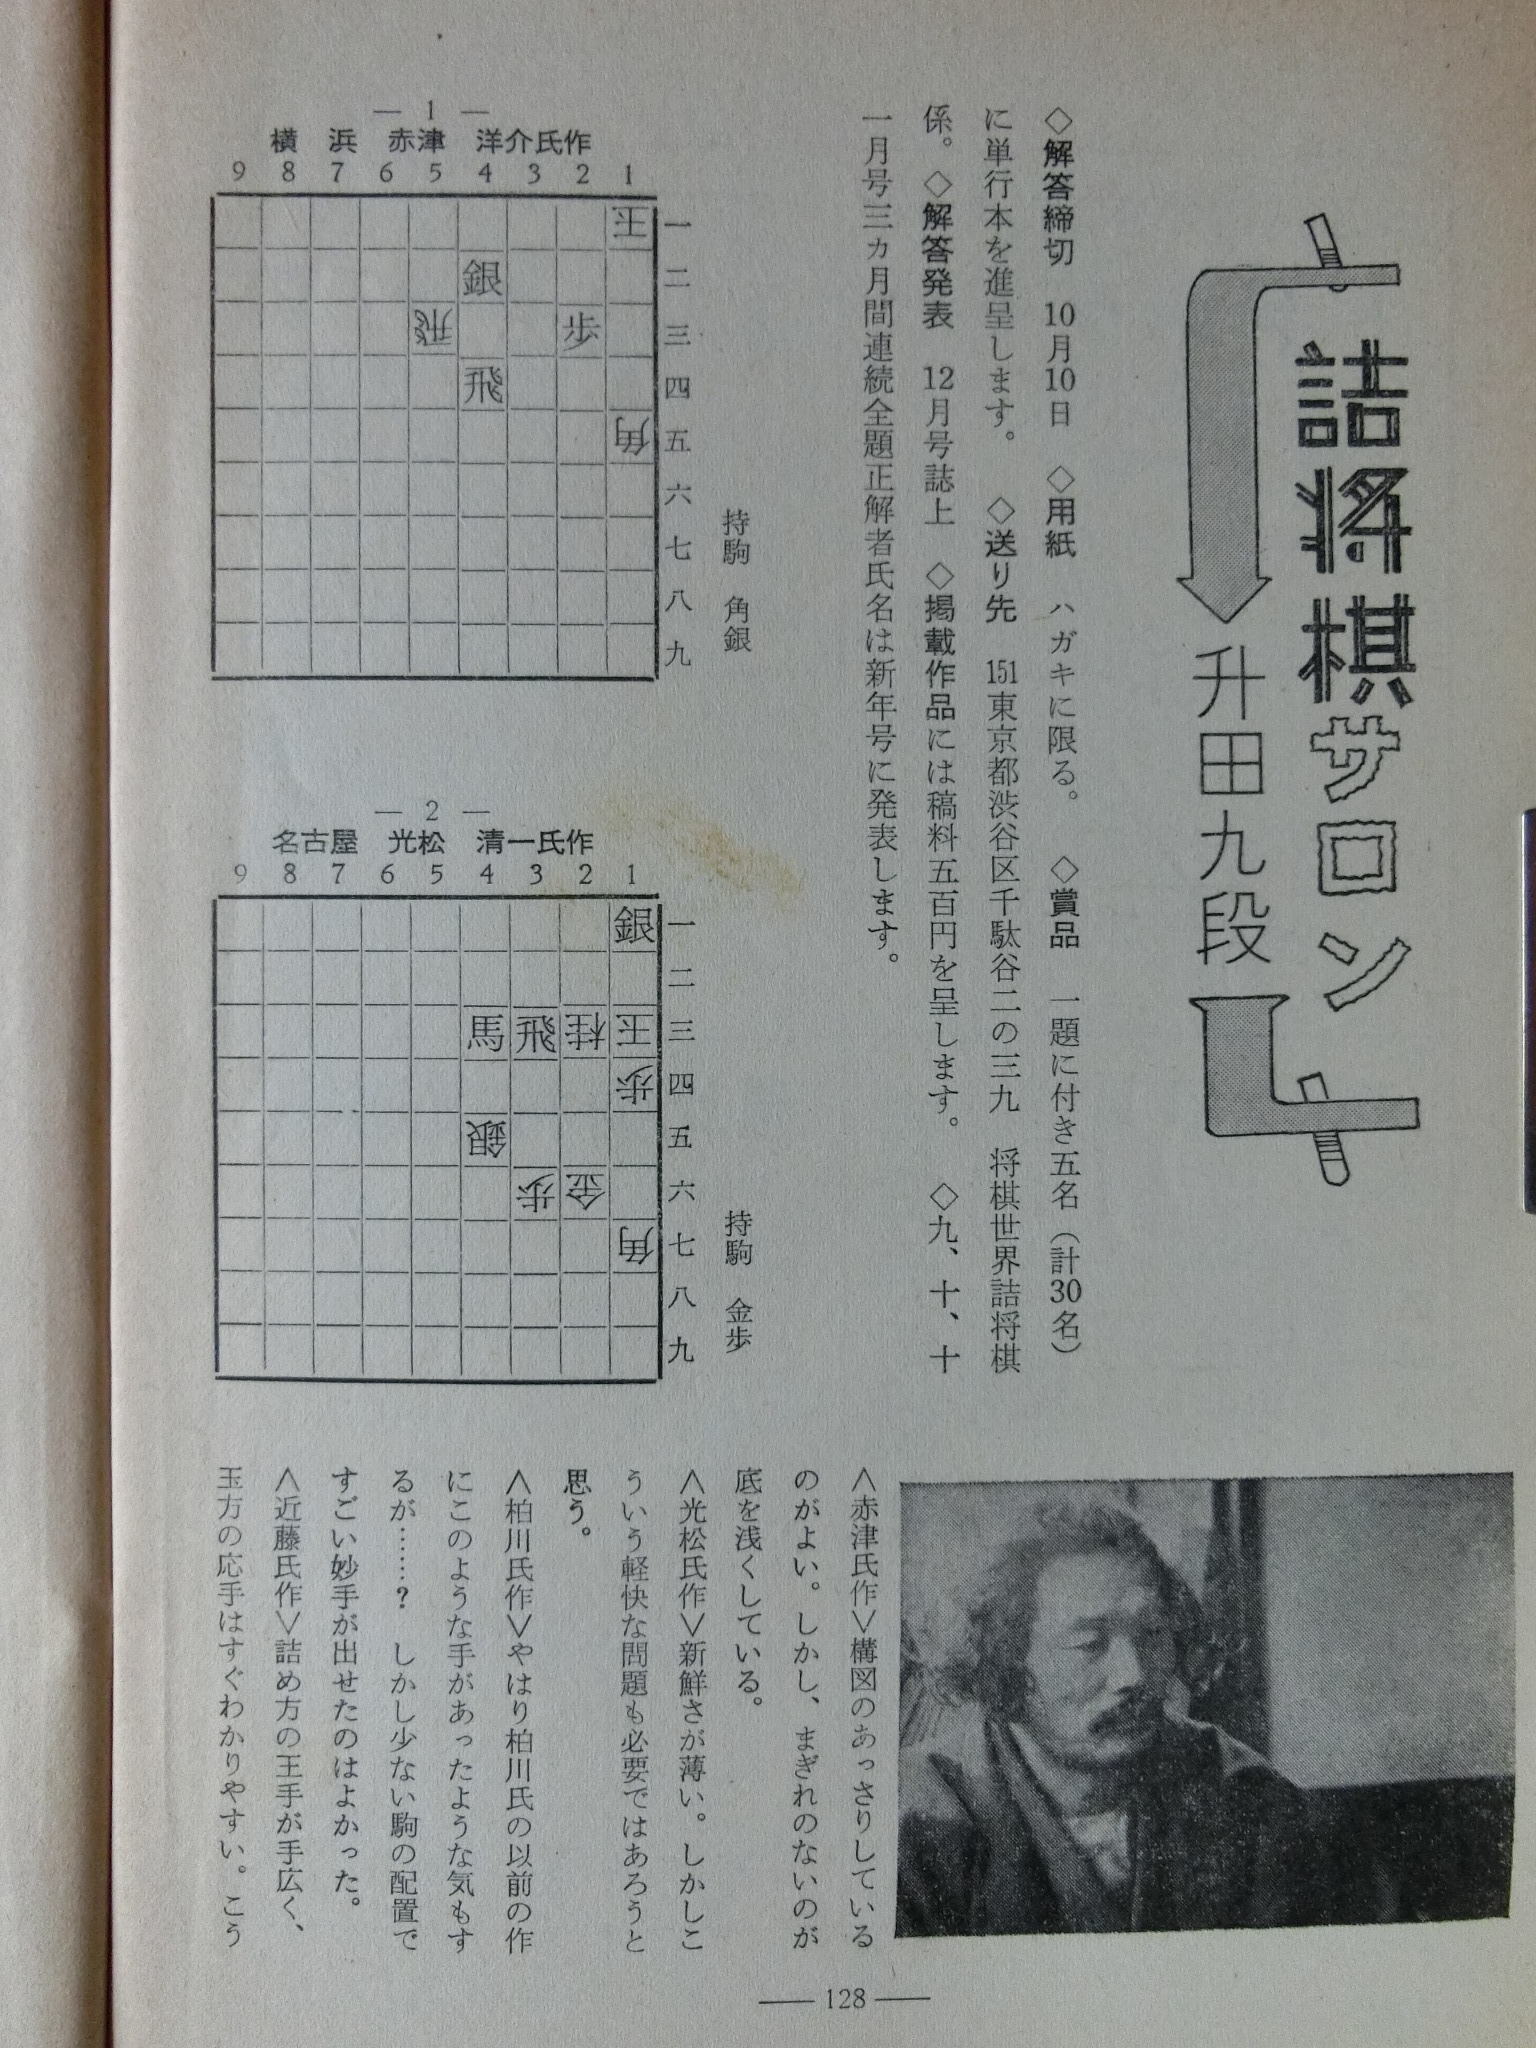 詰将棋サロン
升田九段
◇解答締切　10月10日　◇用紙　ハガキに限る。　◇賞品　一題に付き五名（計30名）
に単行本を進呈します。　◇送り先　151東京都渋谷区千駄谷二の三九　将棋世界詰将棋
係。◇解答発表　12月号誌上　◇掲載作品には稿料五百円を呈します。　◇九、十、十
一月号三カ月間連続全題正解者氏名は新年号に発表します。
— 1 —
横浜　赤津　洋介氏作
9 8 7 6 5 4 3 2 1
王 一
銀 二
飛 歩 三
飛 四
角 五
六
七
八
九
持駒　角銀
— 2 —
名古屋　光松　清一氏作
9 8 7 6 5 4 3 2 1
銀 一
二
馬 飛 桂 王 三
歩 四
銀 五
歩 金 六
角 七
八
九
持駒　金歩
＜赤津氏作＞構図のあっさりしている
のがよい。しかし、まぎれのないのが
底を浅くしている。
＜光松氏作＞新鮮さが薄い。しかしこ
ういう軽快な問題も必要ではあろうと
思う。
＜柏川氏作＞やはり柏川氏の以前の作
にこのような手があったような気もす
るが……？　しかし少ない駒の配置で
すごい妙手が出せたのはよかった。
＜近藤氏作＞詰め方の王手が手広く、
玉方の応手はすぐわかりやすい。こう
— 128 —